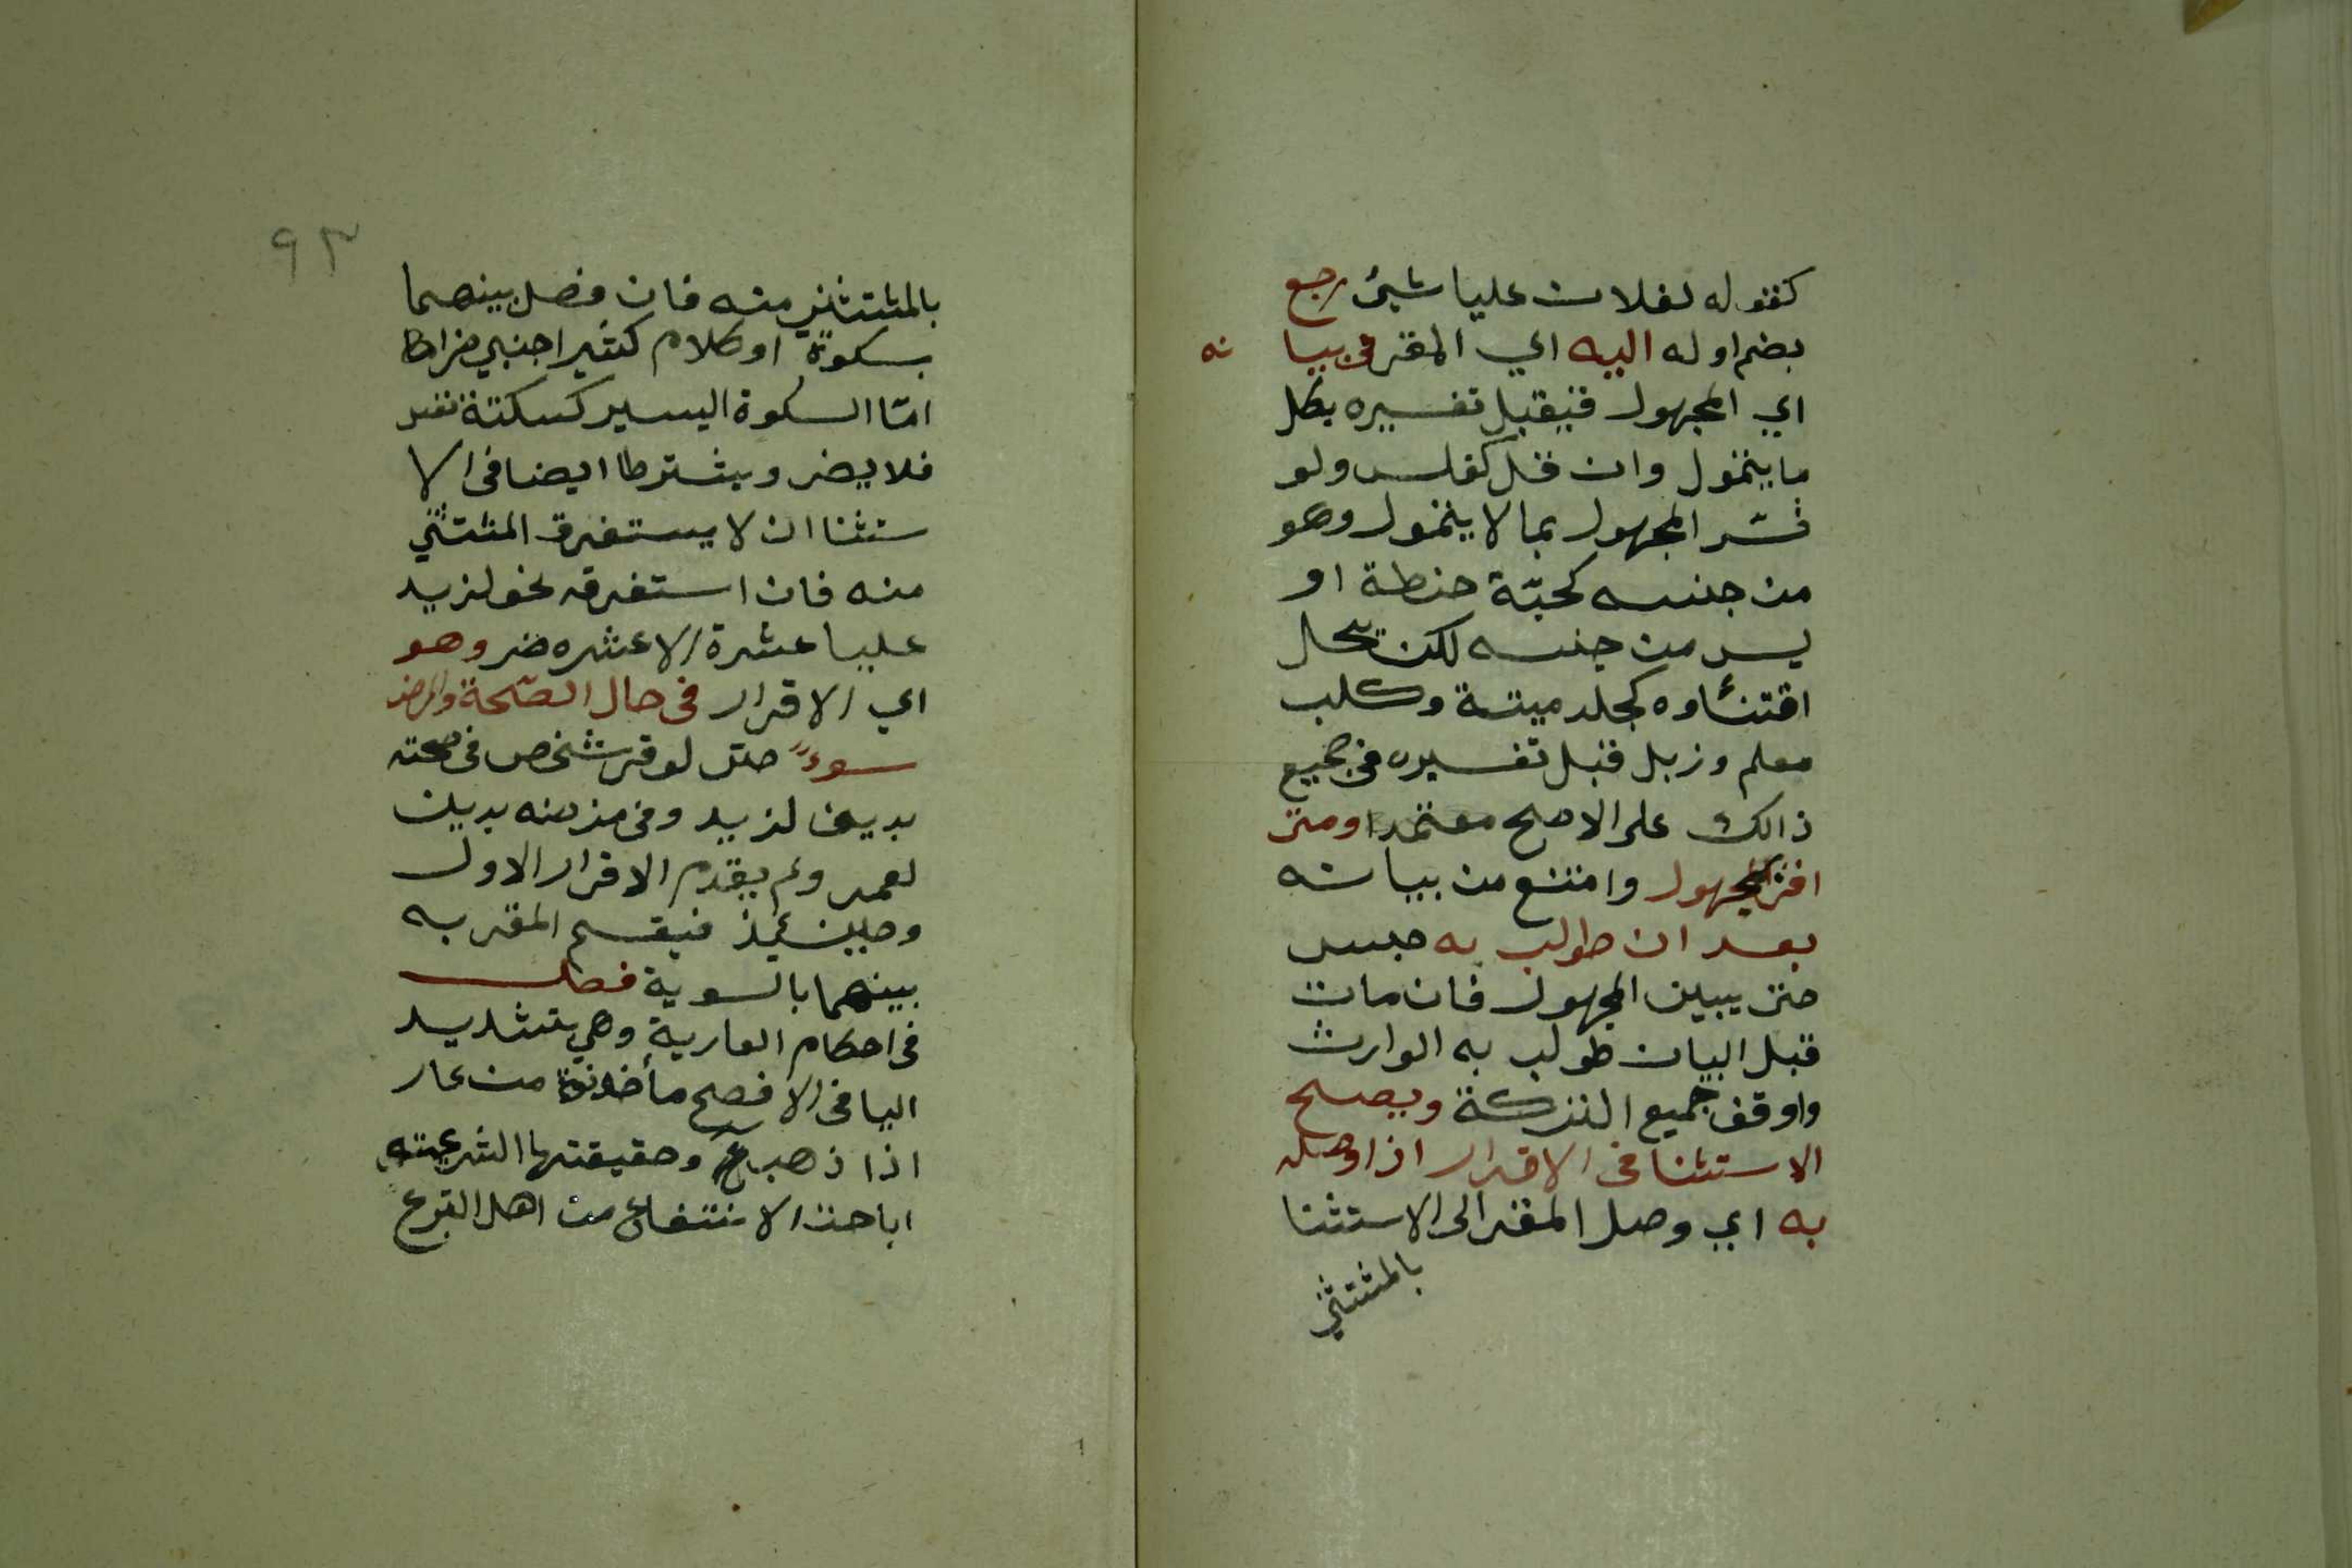 كقوله لفلان عليا شيئ رجع
بضم اوله اليه اي المقر فى بيا نه
اي المجهول فيقبل تفسيره بكل
ما يتمول وان قل كفلس ولو
فسّر المجهول بما لا يتمول وهو
من جنسه كحبّة حنطة او
يس من جنسه لكن يحل
اقتنأوه كجلد ميتة وكلب
معلم وزبل قبل تفسيره فى جميع
ذالك على الاصح معتمدا ومتى
اقر المجهول وامتنع من بيانه
بعد ان طولب به حبس
حتى يبين المجهول فان مات
قبل البيان طولب به الوارث
واوقف جميع التركة ويصح
الاستثنا فى الاقرار اذا وصله
به اي وصل المقر الى الاستثنا
بالمثتثني
٩٣
بالمثتثني منه فان فصل بينهما
بسكوة او كلام كثير اجنبي
امّا السكوة اليسير كسكتة
فلا يضر ويشترطا ايضا فى الا
ستثنا ان لا يستغرق المثتثني
منه فان استغرقه نحو لزيد
عليا عشرة الا عشره ضر وهو
اي الاقرار فى حال الصّحة والمرض
سوءً حتى لو قر شخص فى صحته
بدين لزيد وفى مرضه بدين
لعمر ولم يقدم الاقرار الاول
وحين ئيذ فيقسم المقر به
بينهما بالسوية فصل
فى احكام العارية وهي بتشديد
اليا فى الافصح مأخذوة من عار
اذا ذهب وحقيقتها الشرعيته
اباحت الانتفاع من اهل التبرع